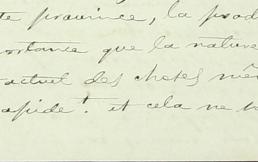 te province, la prod
portance que la nature
actuel des choses mê
rapide. et cela ne